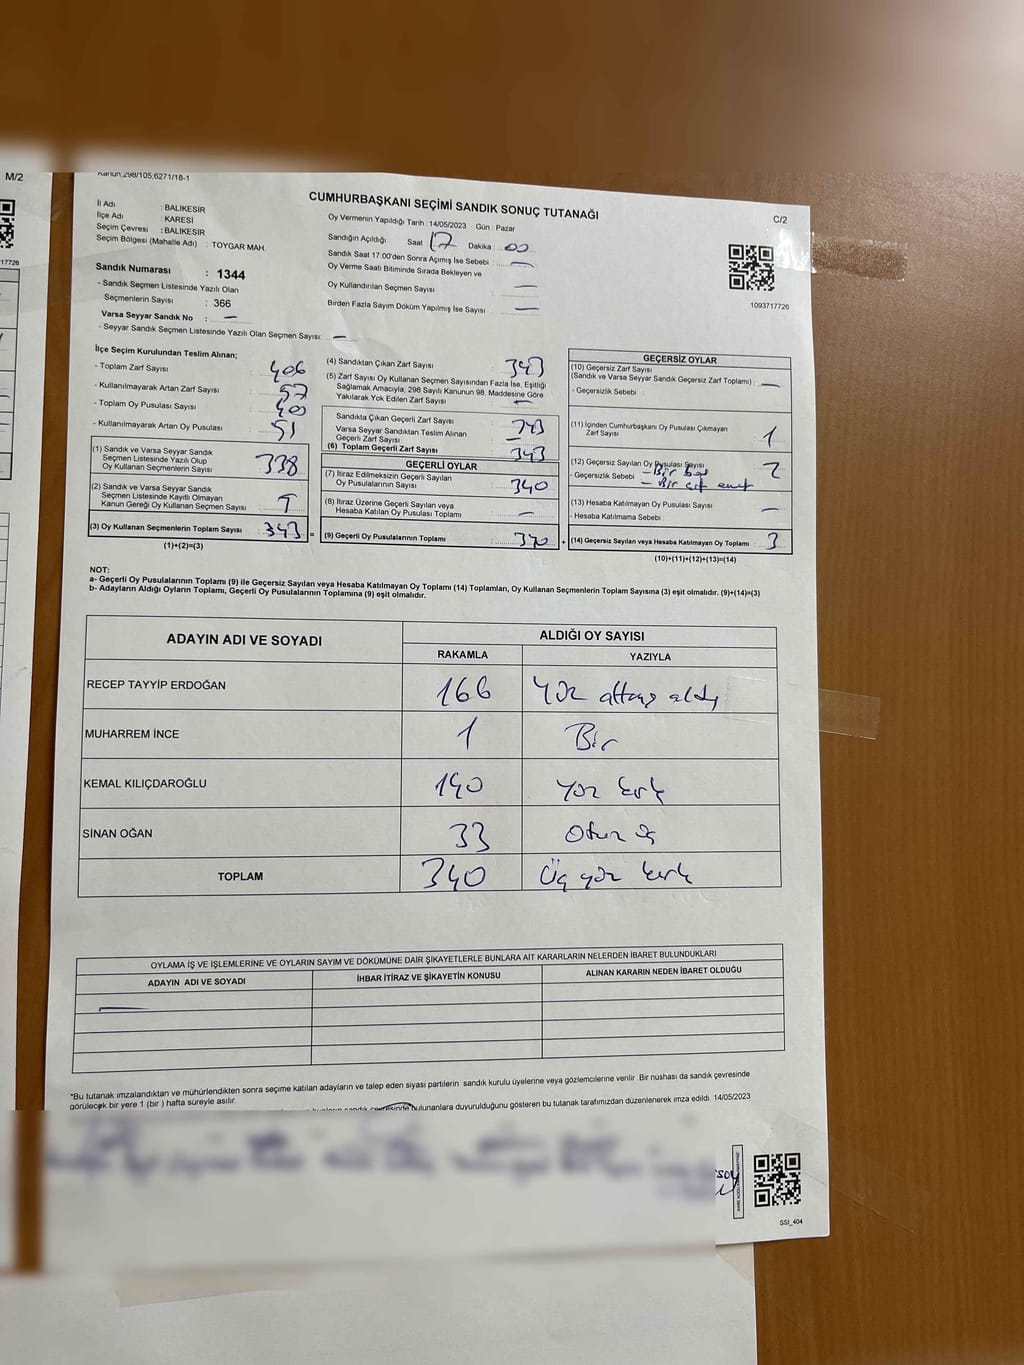 M/2
Kanun,298/105,6271/18-1
CUMHURBAŞKANI SEÇİMİ SANDIK SONUÇ TUTANAĞI
C/2
İl Adı : BALIKESİR
İlçe Adı : KARESİ
Seçim Çevresi : BALIKESİR
Seçim Bölgesi (Mahalle Adı) : TOYGAR MAH.
Sandık Numarası : 1344
- Sandık Seçmen Listesinde Yazılı Olan
Seçmenlerin Sayısı : 366
Varsa Seyyar Sandık No : —
- Seyyar Sandık Seçmen Listesinde Yazılı Olan Seçmen Sayısı: —
Oy Vermenin Yapıldığı Tarih :14/05/2023 Gün : Pazar
Sandığın Açıldığı Saat 17 Dakika : 00
Sandık Saat 17.00'den Sonra Açımış İse Sebebi : —
Oy Verme Saati Bitiminde Sırada Bekleyen ve
Oy Kullandırılan Seçmen Sayısı : —
Birden Fazla Sayım Döküm Yapılmış İse Sayısı : —
17726
1093717726
İlçe Seçim Kurulundan Teslim Alınan;
- Toplam Zarf Sayısı : 406
- Kullanılmayarak Artan Zarf Sayısı :
- Toplam Oy Pusulası Sayısı : 400
- Kullanılmayarak Artan Oy Pusulası : 51
(1) Sandık ve Varsa Seyyar Sandık
Seçmen Listesinde Yazılı Olup
Oy Kullanan Seçmenlerin Sayısı : 338
(2) Sandık ve Varsa Seyyar Sandık
Seçmen Listesinde Kayıtlı Olmayan
Kanun Gereği Oy Kullanan Seçmen Sayısı : 5
(3) Oy Kullanan Seçmenlerin Toplam Sayısı : 343
(1)+(2)=(3)
=
(4) Sandıktan Çıkan Zarf Sayısı : 343
(5) Zarf Sayısı Oy Kullanan Seçmen Sayısından Fazla İse, Eşitliği
Sağlamak Amacıyla; 298 Sayılı Kanunun 98. Maddesine Göre
Yakılarak Yok Edilen Zarf Sayısı : —
Sandıkta Çıkan Geçerli Zarf Sayısı : 343
Varsa Seyyar Sandıktan Teslim Alınan
Geçerli Zarf Sayısı : —
(6) Toplam Geçerli Zarf Sayısı : 343
GEÇERLİ OYLAR
(7) İtiraz Edilmeksizin Geçerli Sayılan
Oy Pusulalarının Sayısı : 340
(8) İtiraz Üzerine Geçerli Sayılan veya
Hesaba Katılan Oy Pusulası Toplamı : —
(9) Geçerli Oy Pusulalarının Toplamı : 340
+
GEÇERSİZ OYLAR
(10) Geçersiz Zarf Sayısı
(Sandık ve Varsa Seyyar Sandık Geçersiz Zarf Toplamı) : —
- Geçersizlik Sebebi :
(11) İçinden Cumhurbaşkanı Oy Pusulası Çıkmayan
Zarf Sayısı : 1
(12) Geçersiz Sayılan Oy Pusulası Sayısı : 2
- Geçersizlik Sebebi : — Bir boş
— Bir çift evet
(13) Hesaba Katılmayan Oy Pusulası Sayısı : —
- Hesaba Katılmama Sebebi :
(14) Geçersiz Sayılan veya Hesaba Katılmayan Oy Toplamı : 3
(10)+(11)+(12)+(13)=(14)
NOT:
a- Geçerli Oy Pusulalarının Toplamı (9) ile Geçersiz Sayılan veya Hesaba Katılmayan Oy Toplamı (14) Toplamları, Oy Kullanan Seçmenlerin Toplam Sayısına (3) eşit olmalıdır. (9)+(14)=(3)
b- Adayların Aldığı Oyların Toplamı, Geçerli Oy Pusulalarının Toplamına (9) eşit olmalıdır.
ADAYIN ADI VE SOYADI
ALDIĞI OY SAYISI
RAKAMLA YAZIYLA
RECEP TAYYİP ERDOĞAN 166 Yüz altmış altı
MUHARREM İNCE 1 Bir
KEMAL KILIÇDAROĞLU 140 Yüz kırk
SİNAN OĞAN 33 Otuz üç
TOPLAM 340 Üç yüz kırk
OYLAMA İŞ VE İŞLEMLERİNE VE OYLARIN SAYIM VE DÖKÜMÜNE DAİR ŞİKAYETLERLE BUNLARA AİT KARARLARIN NELERDEN İBARET BULUNDUKLARI
ADAYIN ADI VE SOYADI İHBAR İTİRAZ VE ŞİKAYETİN KONUSU ALINAN KARARIN NEDEN İBARET OLDUĞU
—
*Bu tutanak imzalandıktan ve mühürlendikten sonra seçime katılan adayların ve talep eden siyasi partilerin sandık kurulu üyelerine veya gözlemcilerine verilir. Bir nüshası da sandık çevresinde
görülecek bir yere 1 (bir ) hafta süreyle asılır.
sandık çevresinde bulunanlara duyurulduğunu gösteren bu tutanak tarafımızdan düzenlenerek imza edildi. 14/05/2023
SSI_404